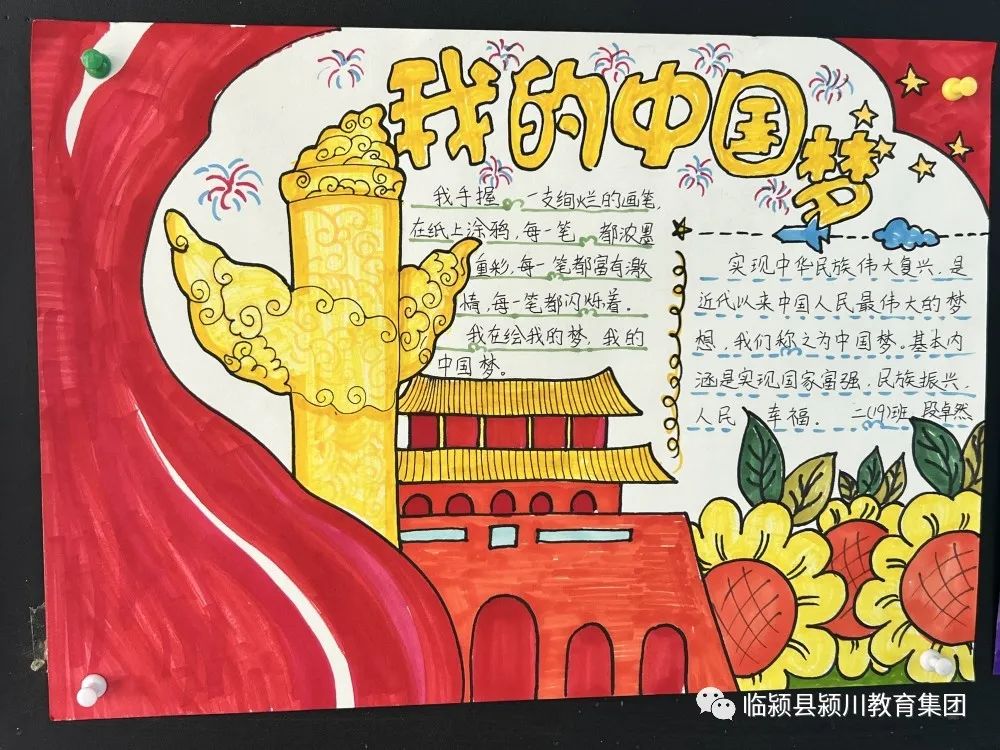 我的中国梦
我手握一支绚烂的画笔,
在纸上涂鸦,每一笔都浓墨
重彩,每一笔都富有激
情,每一笔都闪烁着。
我在绘我的梦,我的
中国梦。
实现中华民族伟大复兴,是
近代以来中国人民最伟大的梦
想,我们称之为中国梦。基本内
涵是实现国家富强,民族振兴,
人民幸福.
二(19)班 段卓然
临颍县颍川教育集团